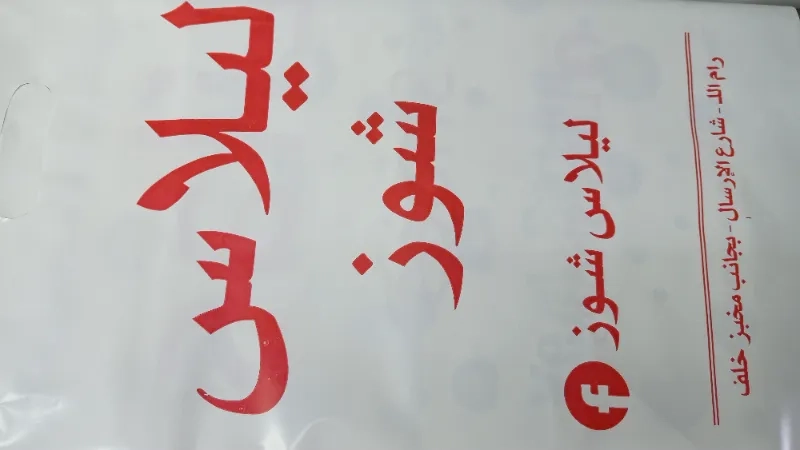 ليلاس
شوز
ليلاس شوز
رام اللـ - شارع الإرسال - بجانب مخبز خلف